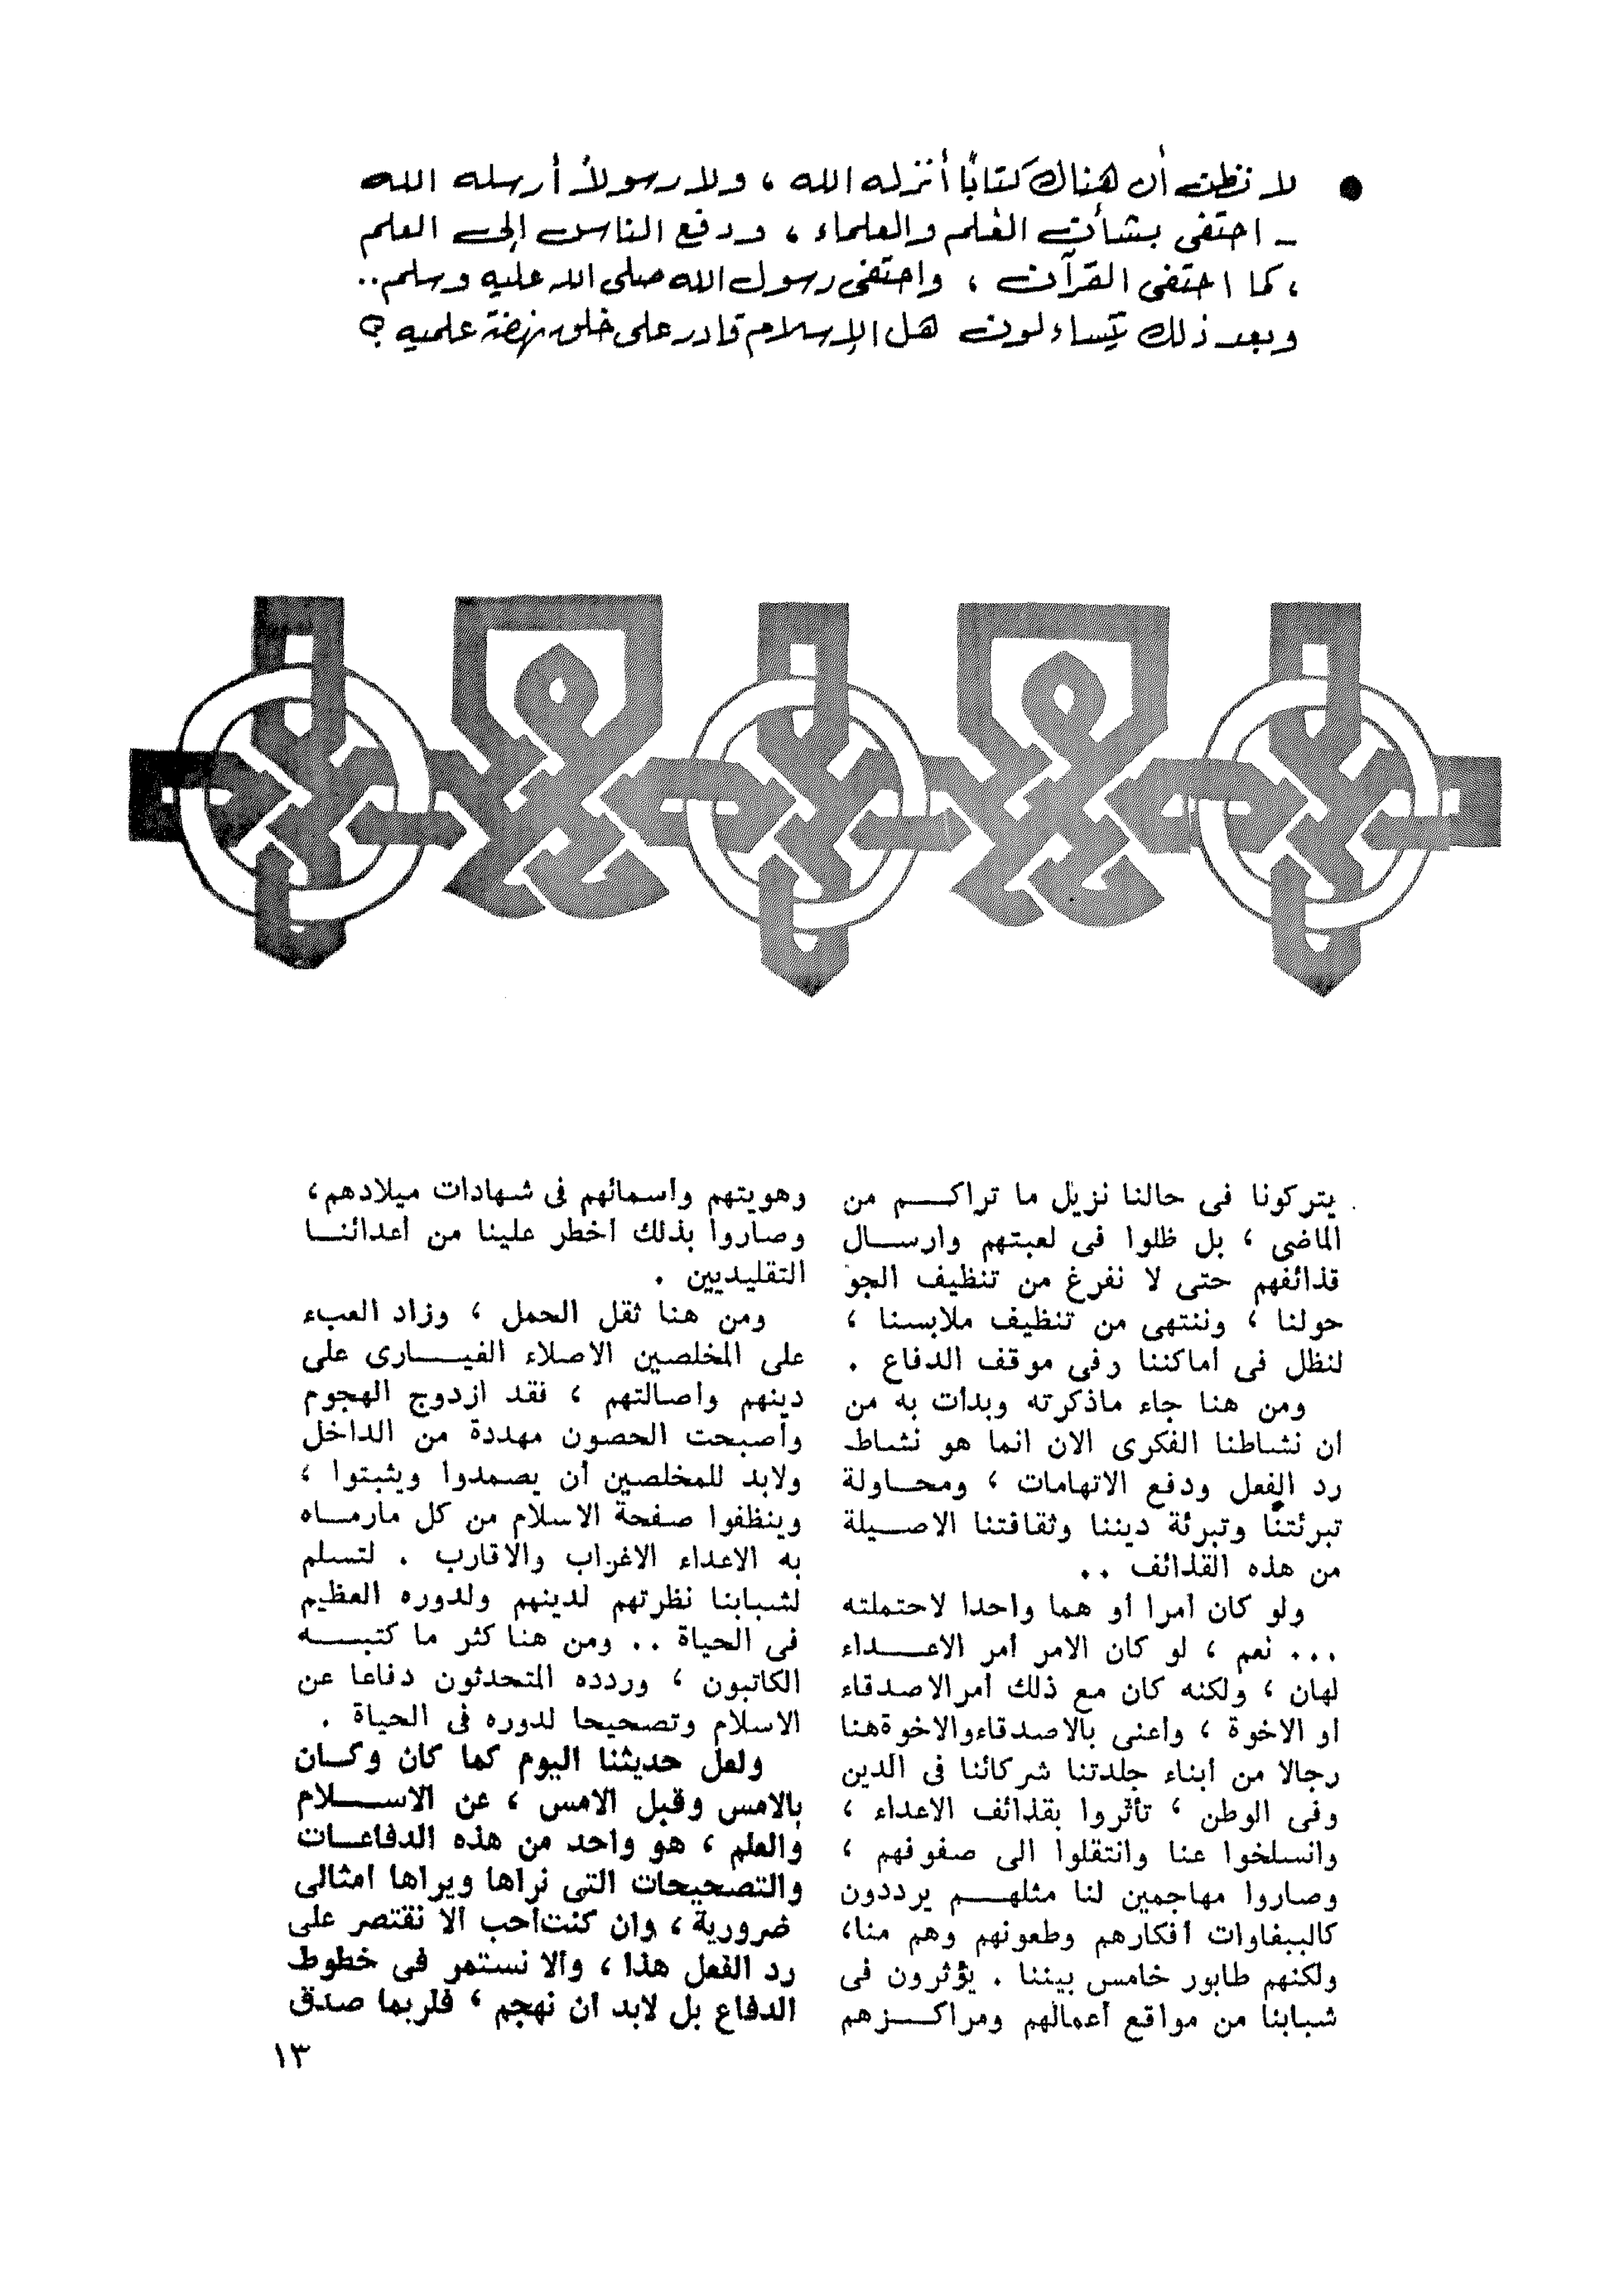 ● لا نظن أن هناك كتابًا أنزله الله ، ولا رسولاً أرسله الله
- احتفى بشأن العلم والعلماء ، ودفع الناس إلى العلم
، كما احتفى القرآن ، واحتفى رسول الله صلى الله عليه وسلم ..
وبعد ذلك يتساءلون هل الإسلام قادر على خلق نهضة علميه ؟
يتركونا فى حالنا نزيل ما تراكم من
الماضى ، بل ظلوا فى لعبتهم وارسال
قذائفهم حتى لا نفرغ من تنظيف الجو
حولنا ، وننتهى من تنظيف ملابسنا ،
لنظل فى أماكننا وفى موقف الدفاع .
ومن هنا جاء ماذكرته وبدأت به من
أن نشاطنا الفكرى الان انما هو نشاط
رد الفعل ودفع الاتهامات ، ومحاولة
تبرئتنا وتبرئة ديننا وثقافتنا الاصيلة
من هذه القذائف ..
ولو كان أمرا أو هما واحدا لاحتملته
... نعم ، لو كان الامر أمر الاعداء
لهان ، ولكنه كان مع ذلك أمر الاصدقاء
أو الاخوة ، وأعنى بالاصدقاء والاخوة هنا
رجالا من أبناء جلدتنا شركائنا فى الدين
وفى الوطن ، تأثروا بقذائف الاعداء ،
وانسلخوا عنا وانتقلوا الى صفوفهم ،
وصاروا مهاجمين لنا مثلهم يرددون
كالببغاوات أفكارهم وطعونهم وهم منا،
ولكنهم طابور خامس بيننا . يؤثرون فى
شبابنا من مواقع أعمالهم ومراكزهم
وهويتهم وأسمائهم فى شهادات ميلادهم،
وصاروا بذلك أخطر علينا من أعدائنا
التقليديين .
ومن هنا ثقل الحمل ، وزاد العبء
على المخلصين الاصلاء الغيارى على
دينهم وأصالتهم ، فقد ازدوج الهجوم
وأصبحت الحصون مهددة من الداخل
ولابد للمخلصين أن يصمدوا ويثبتوا ،
وينظفوا صفحة الاسلام من كل مارماه
به الاعداء الاغراب والاقارب . لتسلم
لشبابنا نظرتهم لدينهم ولدوره العظيم
فى الحياة .. ومن هنا كثر ما كتبه
الكاتبون ، وردده المتحدثون دفاعا عن
الاسلام وتصحيحا لدوره فى الحياة .
ولعل حديثنا اليوم كما كان وكان
بالامس وقبل الامس ، عن الاسلام
والعلم ، هو واحد من هذه الدفاعات
والتصحيحات التى نراها ويراها أمثالى
ضرورية ، وان كنت أحب ألا نقتصر على
رد الفعل هذا ، وألا نستمر فى خطوط
الدفاع بل لابد أن نهجم ، فلربما صدق
١٣